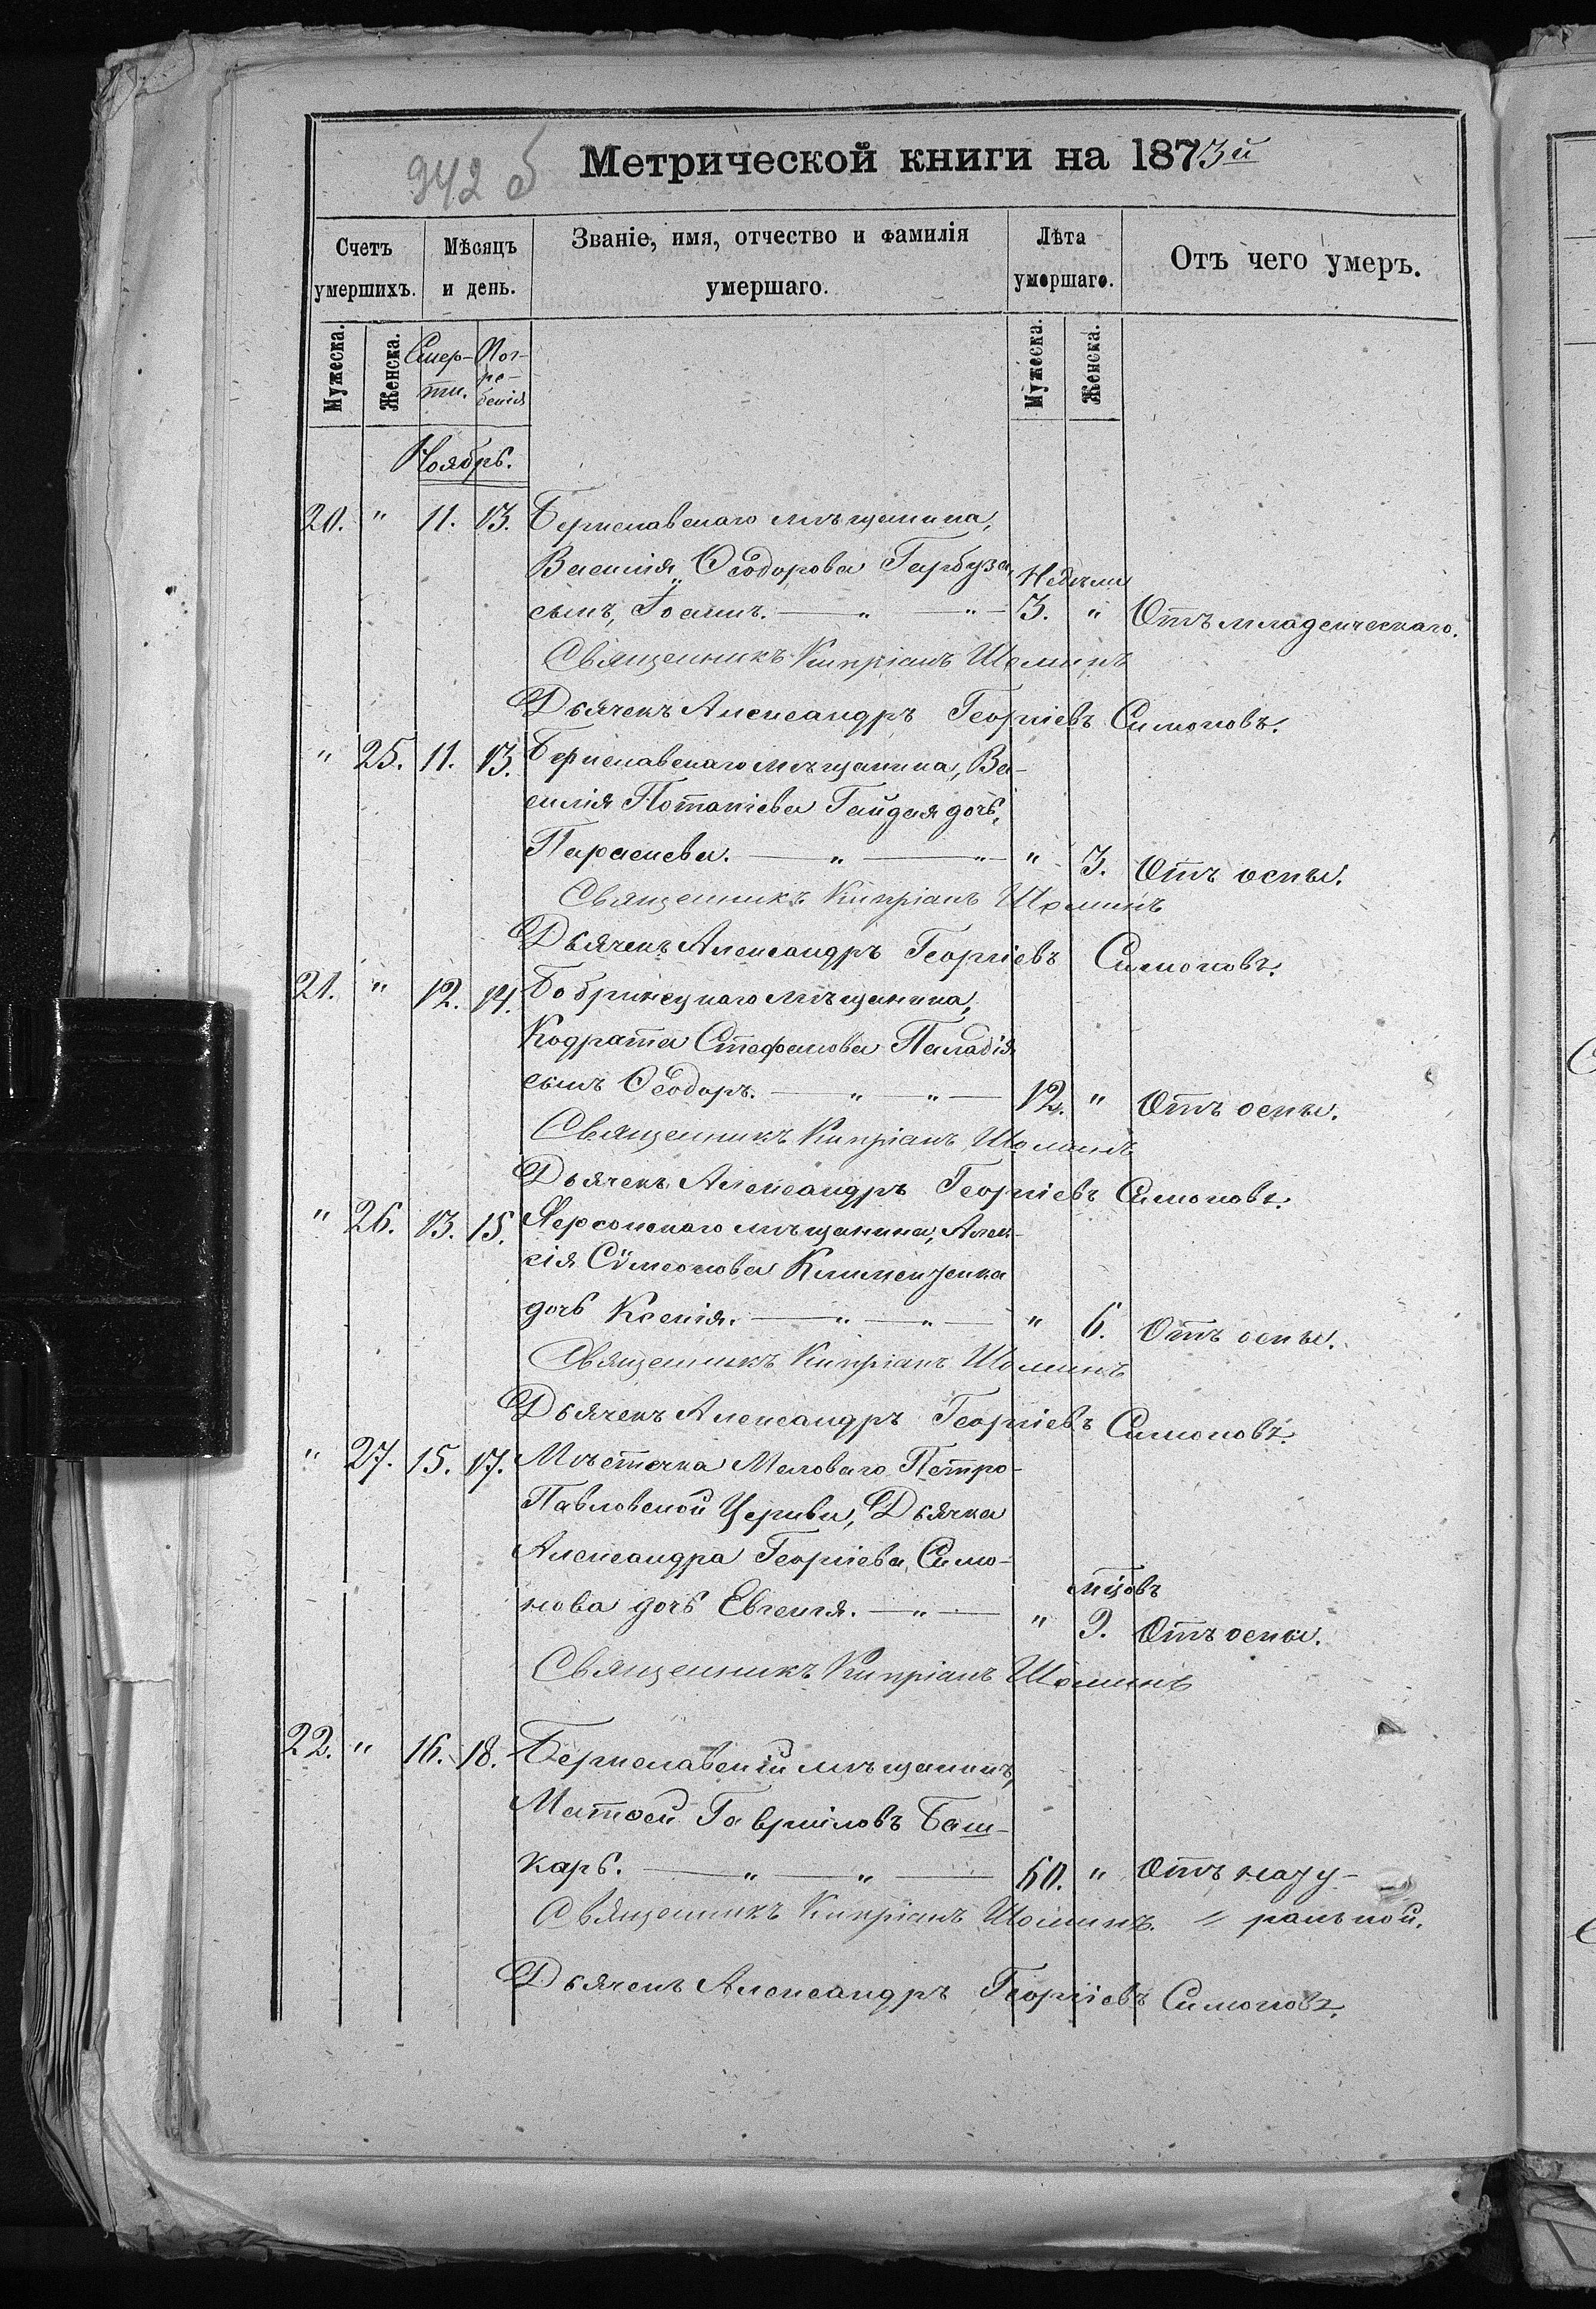 942 б
Метрической книги на 1873й
Счетъ умершихъ.
Мѣсяцъ и день.
Званіе, имя, отчество и фамилія умершаго.
Лѣта умершаго.
Отъ чего умеръ.
Мужеска.
Женска.
Смер-
ти.
Пог-
ре-
бенія
Мужеска.
Женска.
Ноябрь.
20. " 11. 13. Бериславскаго мѣщанина,
Василія Ѳеодорова Гарбуза, Недѣли
сынъ, Іоаннъ. — " — " — 3. " Отъ младенческаго.
Священникъ Кипріанъ Шоминъ
Дьячекъ Александръ Георгіевъ Симоновъ.
" 25. 11. 13. Бериславскаго мѣщанина, Ва-
силія Потапіева Гайдая дочь,
Параскева. — " — " — " 3. Отъ оспы.
Священникъ Кипріанъ Шоминъ
Дьячекъ Александръ Георгіевъ Симоновъ.
21. " 12. 14. Бобринецкаго мѣщанина,
Кодрата Стефанова Паладія
сынъ Ѳеодоръ. — " — " — 12. " Отъ оспы.
Священникъ Кипріанъ Шоминъ
Дьячекъ Александръ Георгіевъ Симоновъ.
" 26. 13. 15. Херсонскаго мѣщанина, Алек-
сія Сѵмеонова Клименченка
дочь Ксенія. — " — " — " 6. Отъ оспы.
Священникъ Кипріанъ Шоминъ
Дьячекъ Александръ Георгіевъ Симоновъ.
" 27. 15. 17. Мѣстечка Меловаго Петро-
Павловской Церкви, Дьячка
Александра Георгіева Симо-
мцовъ
нова дочь Евгенія. — " — " 9. Отъ оспы.
Священникъ Кипріанъ Шоминъ
22. " 16. 18. Бериславскій мѣщанинъ,
Матѳей Гавриловъ Баш-
карь. — " — " — 60. " Отъ нату-
Священникъ Кипріанъ Шоминъ. = ральной.
Дьячекъ Александръ Георгіевъ Симоновъ.